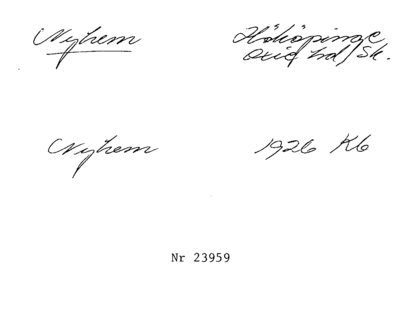 Nyhem
Hököpinge
Oxie hd/Sk.
Nyhem
1926 Kb
Nr 23959